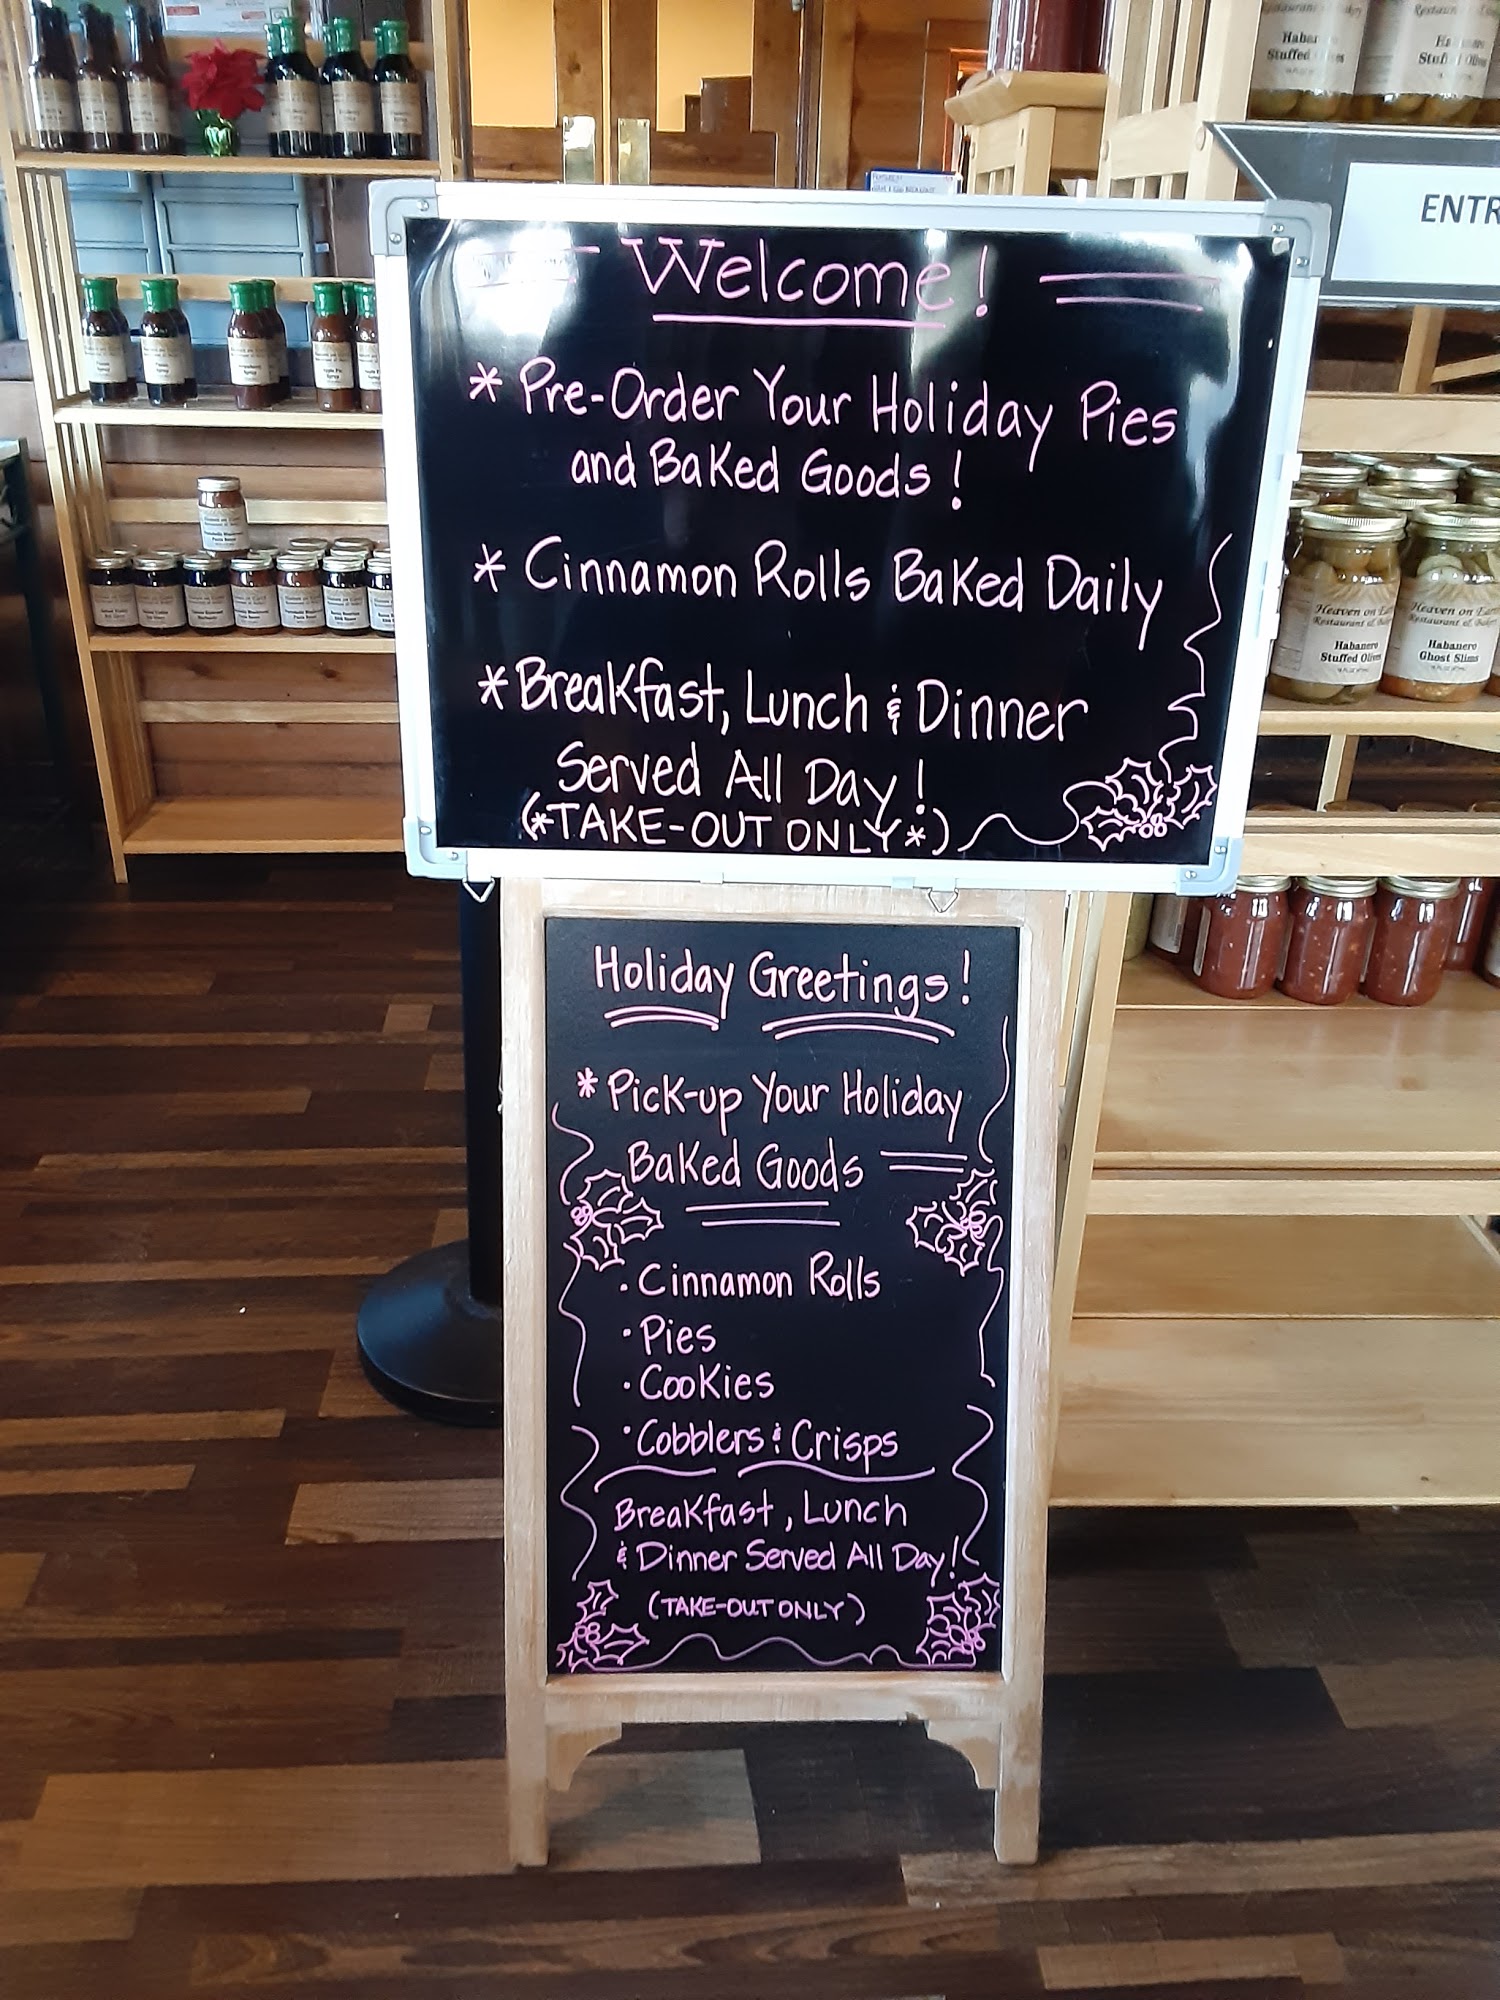 Restaurant & Bakery
Habanero
Stuffed Olives
ENTR
Welcome!
* Pre-Order Your Holiday Pies
and Baked Goods!
* Cinnamon Rolls Baked Daily
* Breakfast, Lunch & Dinner
Served All Day!
(*TAKE-OUT ONLY*)
Heaven on Eart
Restaurant & Baker
Habanero
Stuffed Olives
Heaven on Eart
Restaurant & Bakery
Habanero
Ghost Slims
Holiday Greetings!
* Pick-up Your Holiday
Baked Goods
. Cinnamon Rolls
· Pies
· Cookies
· Cobblers & Crisps
Breakfast, Lunch
& Dinner Served All Day!
(TAKE-OUT ONLY)